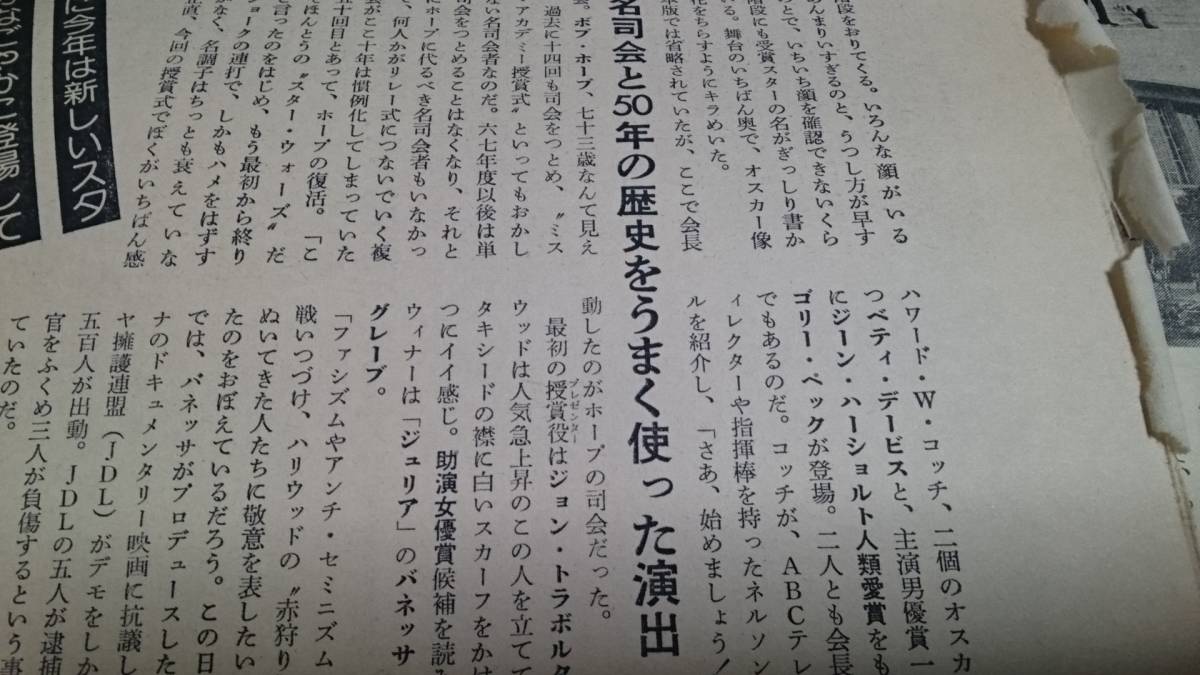 段をおりてくる。いろんな顔がいる
んまりいすぎるのと、うつし方が早す
とで、いちいち顔を確認できないくら
る。舞台のいちばん奥で、オスカー像
階段にも受賞スターの名がぎっしり書か
花をちらすようにキラめいた。
版では省略されていたが、ここで会長
名司会と50年の歴史をうまく使った演出
会。ボブ・ホープ、七十三歳なんて見え
過去に十四回も司会をつとめ、〝ミス
・アカデミー授賞式〟といってもおかし
ない名司会者なのだ。六七年度以後は単
司会をつとめることはなくなり、それと
にホープに代るべき名司会者もいなかっ
て、何人かがリレー式につないでいく複
会がここ十年は慣例化してしまっていた
五十回目とあって、ホープの復活。「こ
てほんとうの〝スター・ウォーズ〟だ
と言ったのをはじめ、もう最初から終り
ジョークの連打で、しかもハメをはずす
がなく、名調子はちっとも衰えていな
直、今回の授賞式でぼくがいちばん感
に今年は新しいスタ
ハワード・W・コッチ、二個のオスカ
つベティ・デービスと、主演男優賞一
にジーン・ハーショルト人類愛賞をも
ゴリー・ペックが登場。二人とも会長
でもあるのだ。コッチが、ABCテレ
ィレクターや指揮棒を持ったネルソン
ルを紹介し、「さあ、始めましょう！
動したのがホープの司会だった。
最初の授賞役はジョン・トラボルタ
プレゼンター
ウッドは人気急上昇のこの人を立てて
タキシードの襟に白いスカーフをかけ
つにイイ感じ。助演女優賞候補を読み
ウィナーは「ジュリア」のバネッサ
グレーブ。
「ファシズムやアンチ・セミニズム
戦いつづけ、ハリウッドの〝赤狩り
ぬいてきた人たちに敬意を表したい
たのをおぼえているだろう。この日
では、バネッサがプロデュースした
ナのドキュメンタリー映画に抗議し
ヤ擁護連盟（JDL）がデモをしか
五百人が出動。JDLの五人が逮捕
官をふくめ三人が負傷するという事
ていたのだ。